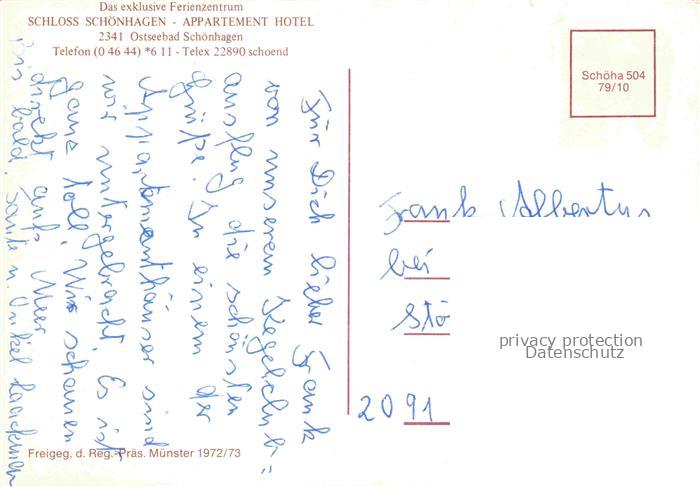 Das exklusive Ferienzentrum
SCHLOSS SCHÖNHAGEN - APPARTEMENT HOTEL
2341 Ostseebad Schönhagen
Telefon (0 46 44) *6 11 - Telex 22890 schoend
Für Dich lieber Frank
von unserem Kegelclub=
ausflug die schönsten
Grüße. In einem der
Appartementhäuser sind
wir untergebracht. Es ist
ganz toll. Wir schauen
direkt aufs Meer
Bis bald. Tante u. Onkel
Schöha 504
79/10
Frank Albertus
bei
Stö
2091
privacy protection
Datenschutz
Freigeg. d. Reg.-Präs. Münster 1972/73